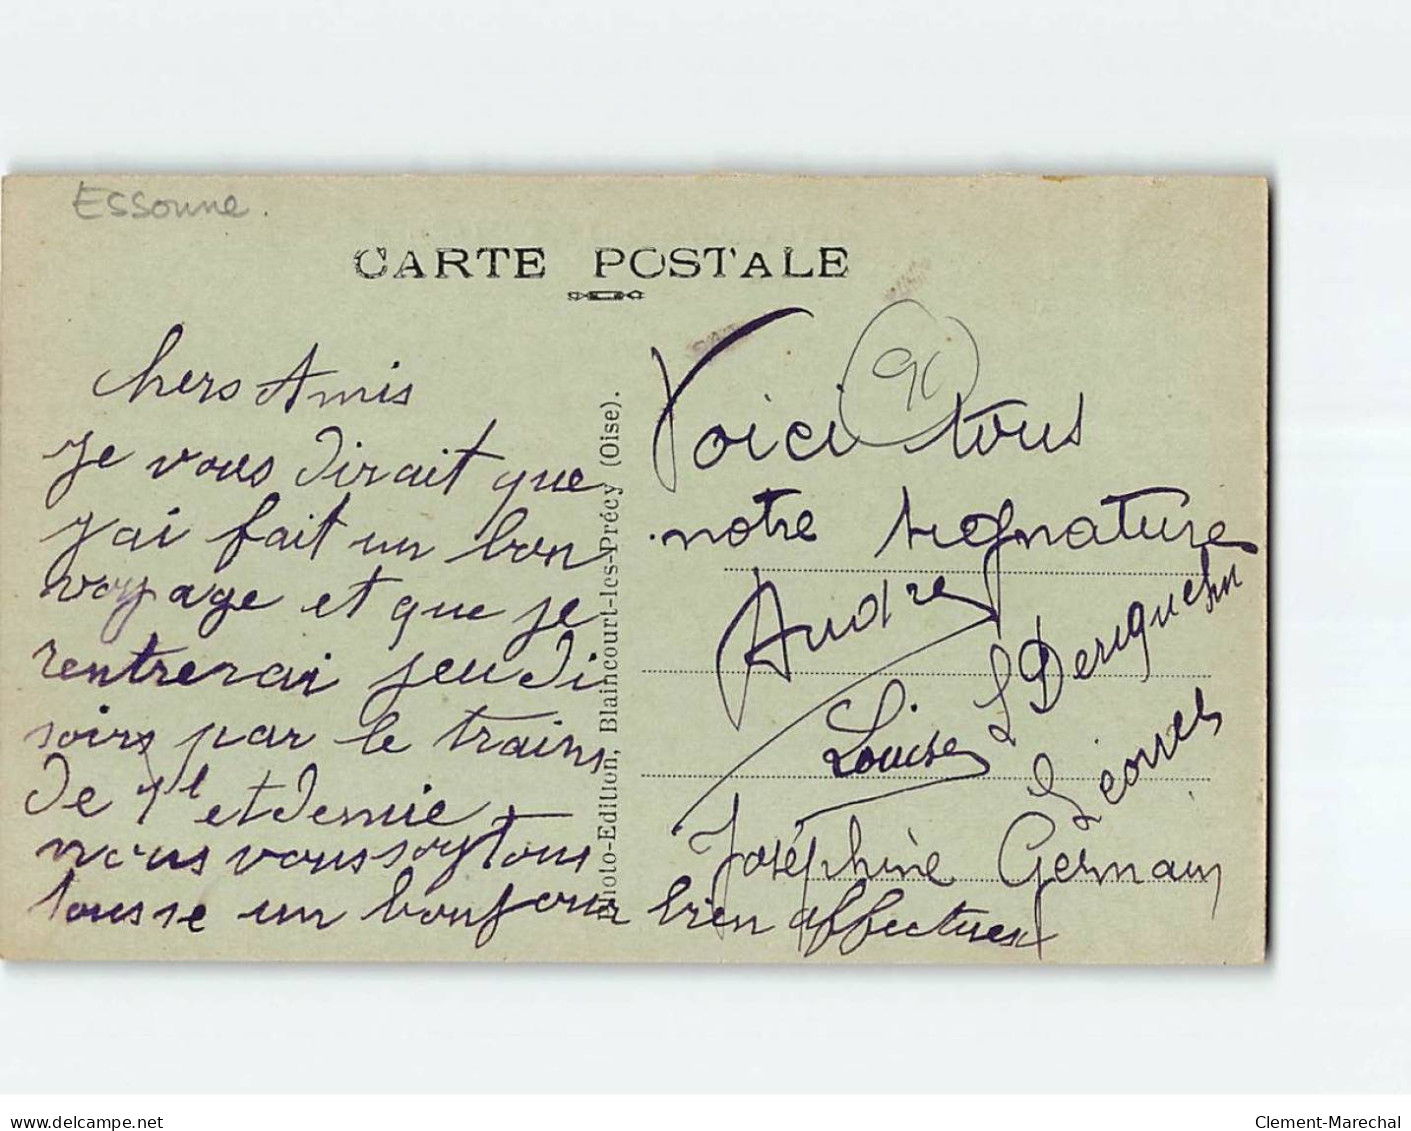 Essonne.
CARTE POSTALE
chers Amis
je vous dirait que
j'ai fait un bon
voyage et que je
rentrerai jeudi
soirs par le trains
de et demie
nous vous
un bonjour bien affectueux
Photo-Edition, Blaincourt-les-Précy (Oise).
Voici tous
notre signature
André
Louise
Joséphine Germain
delcampe.net
Clement-Marechal